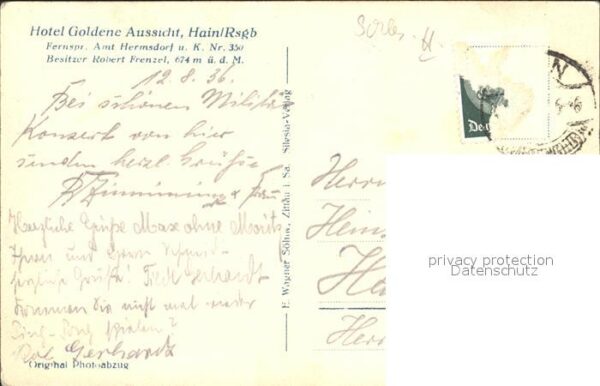 Hotel Goldene Aussicht, Hain/Rsgb
Fernspr. Amt Hermsdorf u. K. Nr. 350
Besitzer Robert Frenzel, 674 m ü. d. M.
12.8.36.
Bei schönem Militär
Konzert von hier
senden herzl. Grüße
u. Frau
Herzliche Grüße Max ohne Moritz
Ihnen und Herrn
herzliche Grüße! Gerhardt
Kommen Sie nicht mal wieder
Ping-Pong spielen?
Gerhardt
Original Photoabzug
E. Wagner Söhne, Zittau i. Sa. Silesia-Verlag
Herrn
privacy protection
Datenschutz